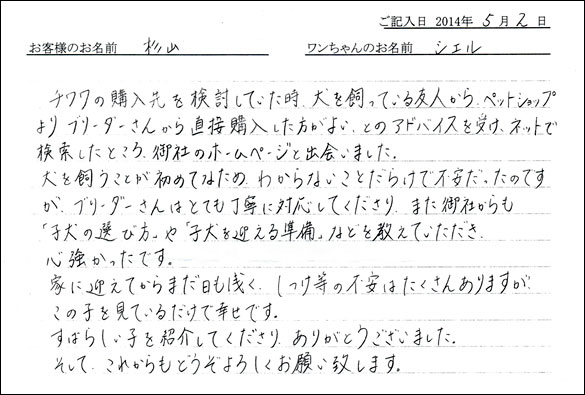 ご記入日 2014年 5月 2日
お客様のお名前 杉山 ワンちゃんのお名前 シェル
チワワの購入先を検討していた時、犬を飼っている友人から、ペットショップ
より ブリーダーさんから直接購入した方がよい、とのアドバイスを受け、ネットで
検索したところ、御社のホームページと出会いました。
犬を飼うことが初めてなため、わからないことだらけで不安だったのです
が、ブリーダーさんはとても丁寧に対応してくださり、また御社からも
「子犬の選び方」や「子犬を迎える準備」などを教えていただき、
心強かったです。
家に迎えてからまだ日も浅く、しつけ等の不安はたくさんありますが、
この子を見ているだけで幸せです。
すばらしい子を紹介してくださり、ありがとうございました。
そして、これからもどうぞよろしくお願い致します。